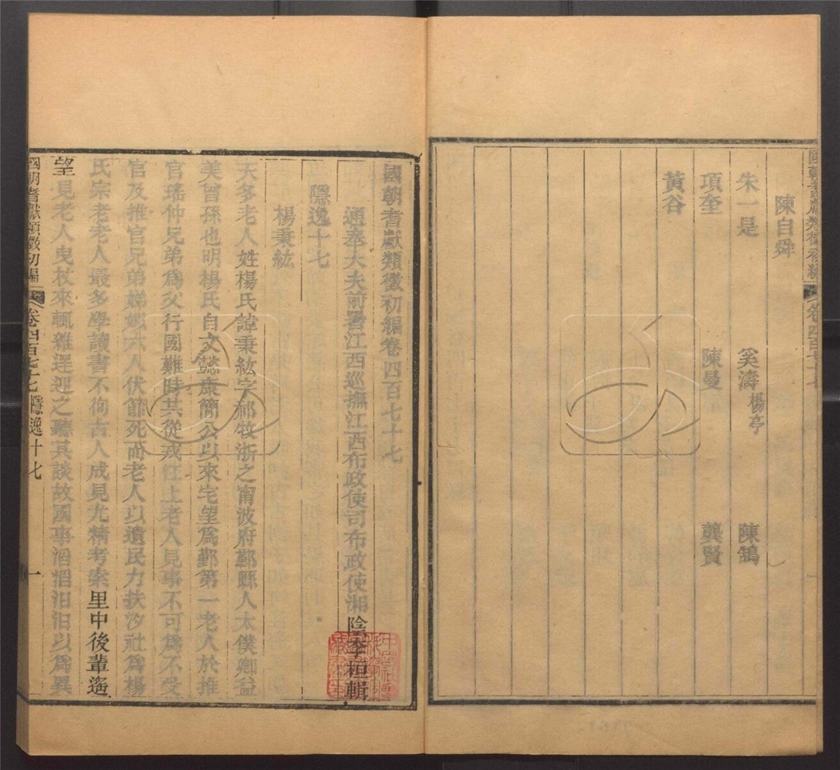 國朝耆獻類徵初編 卷四百七十七
陳自舜
朱一是 奚濤 楊亭 陳鵠
項奎 陳曼 龔賢
黃谷
國朝耆獻類徵初編卷四百七十七
通奉大夫前署江西巡撫江西布政使司布政使湘陰李桓輯
隱逸十七
楊秉紘
天多老人姓楊氏諱秉紘字郝牧浙之甯波府鄞縣人太僕卿益
美曾孫也明楊氏自文懿康簡公以來宅望為鄞第一老人於推
官瑤仲兄弟為父行國難時其從戎江上老人見事不可為不受
官及推官兄弟娣姒六人伏節死而老人以遺民力扶汐社為楊
氏宗老老人最多學讀書不徇古人成見尤精考索里中後輩遙
望見老人曳杖來輒雜遝迎之聽其談故國事滔滔汩汩以為異
國朝耆獻類徵初編 卷四百七十七 隱逸十七 一